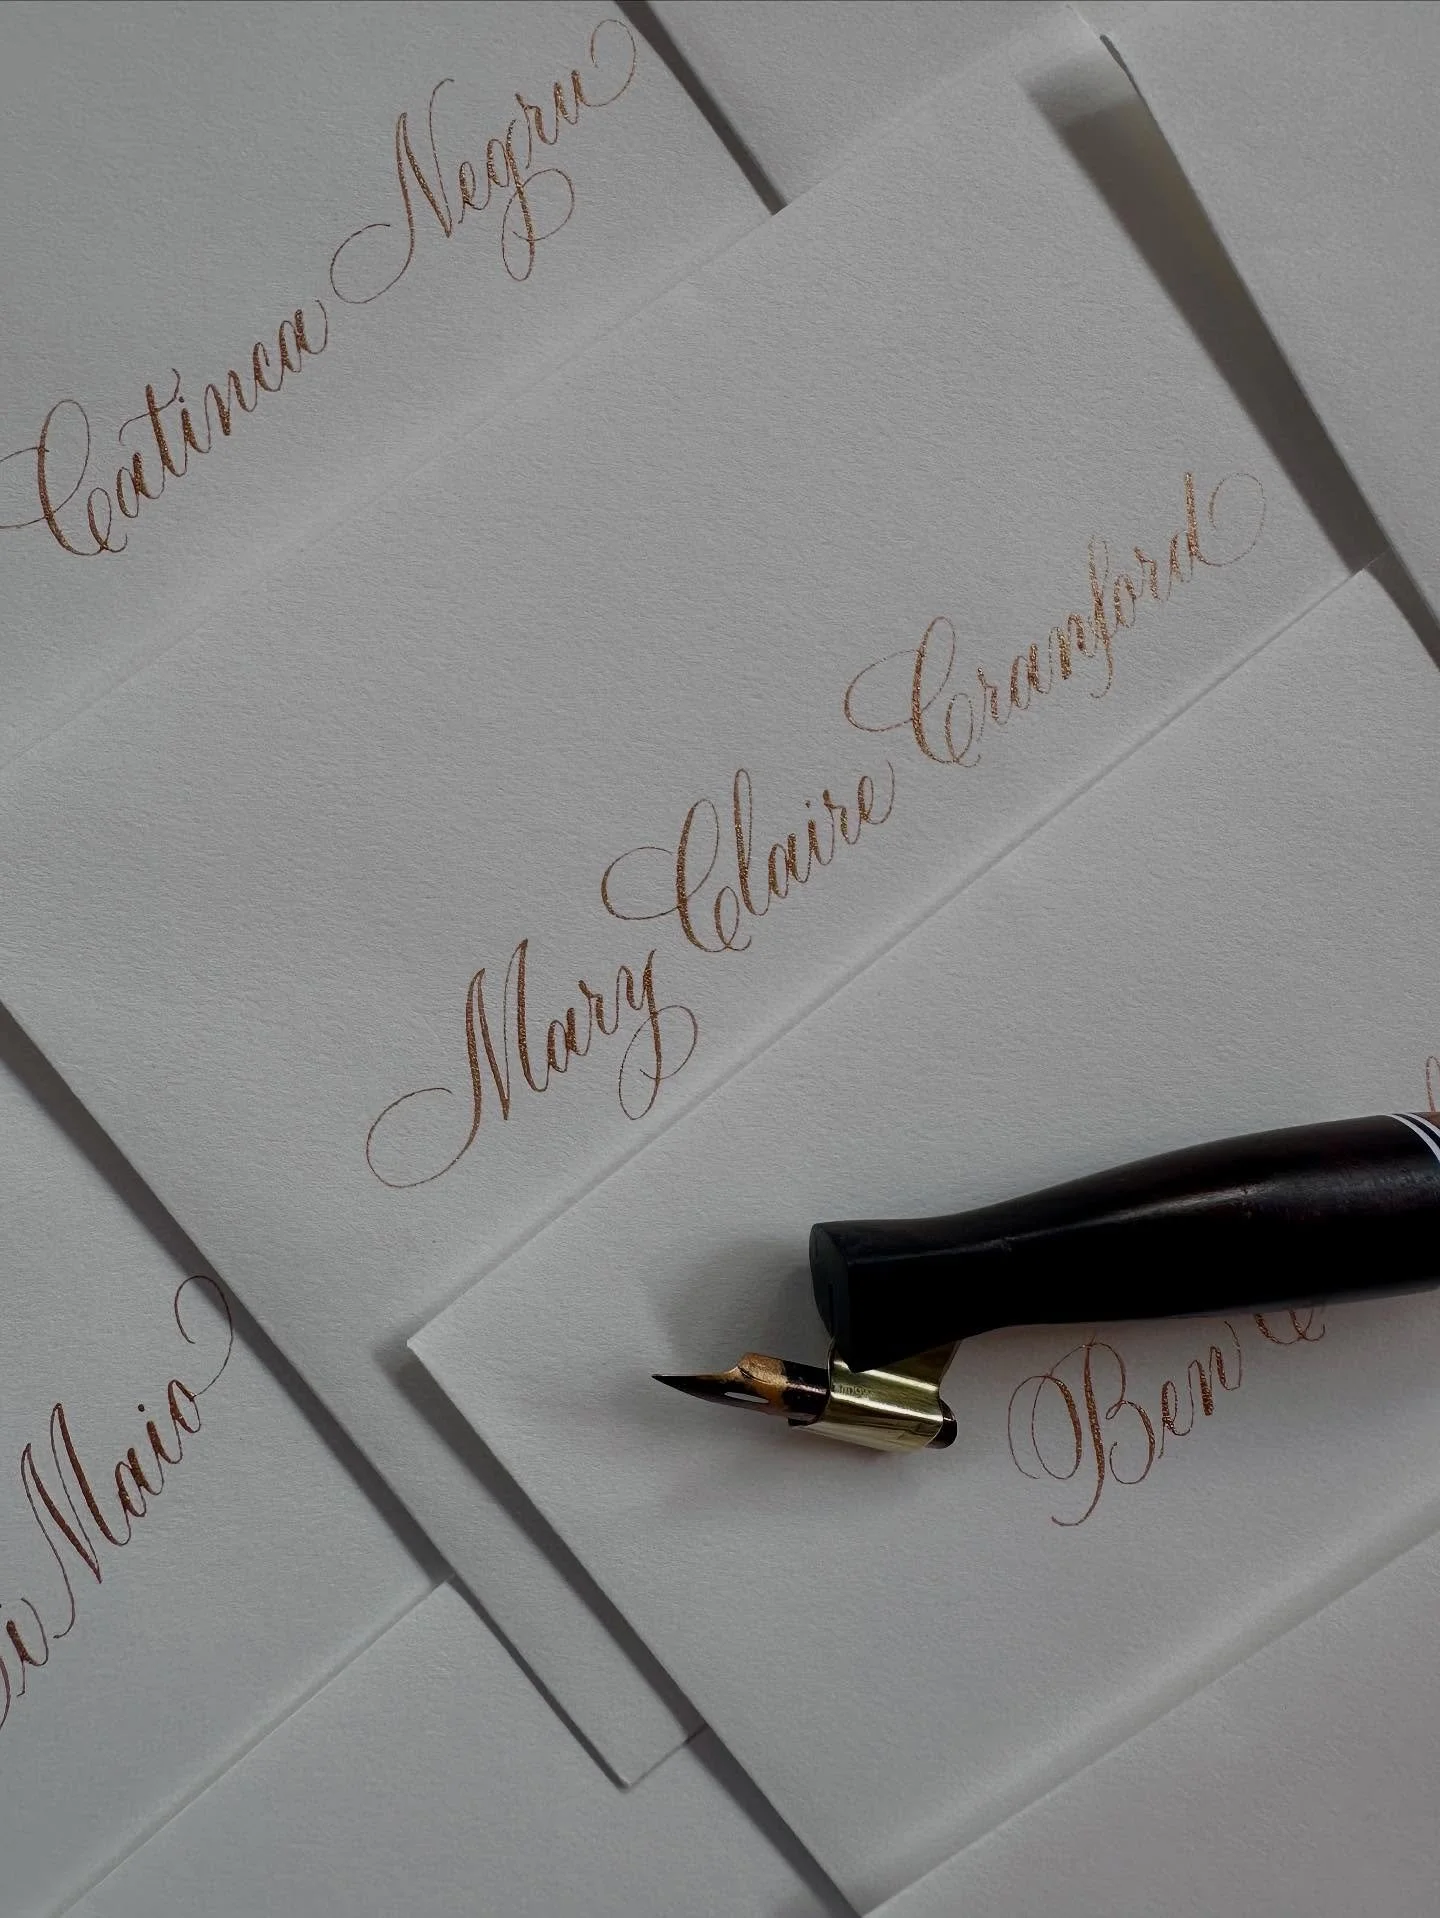 Catinca Negru
Mary Claire Cranford
Maio
Ben